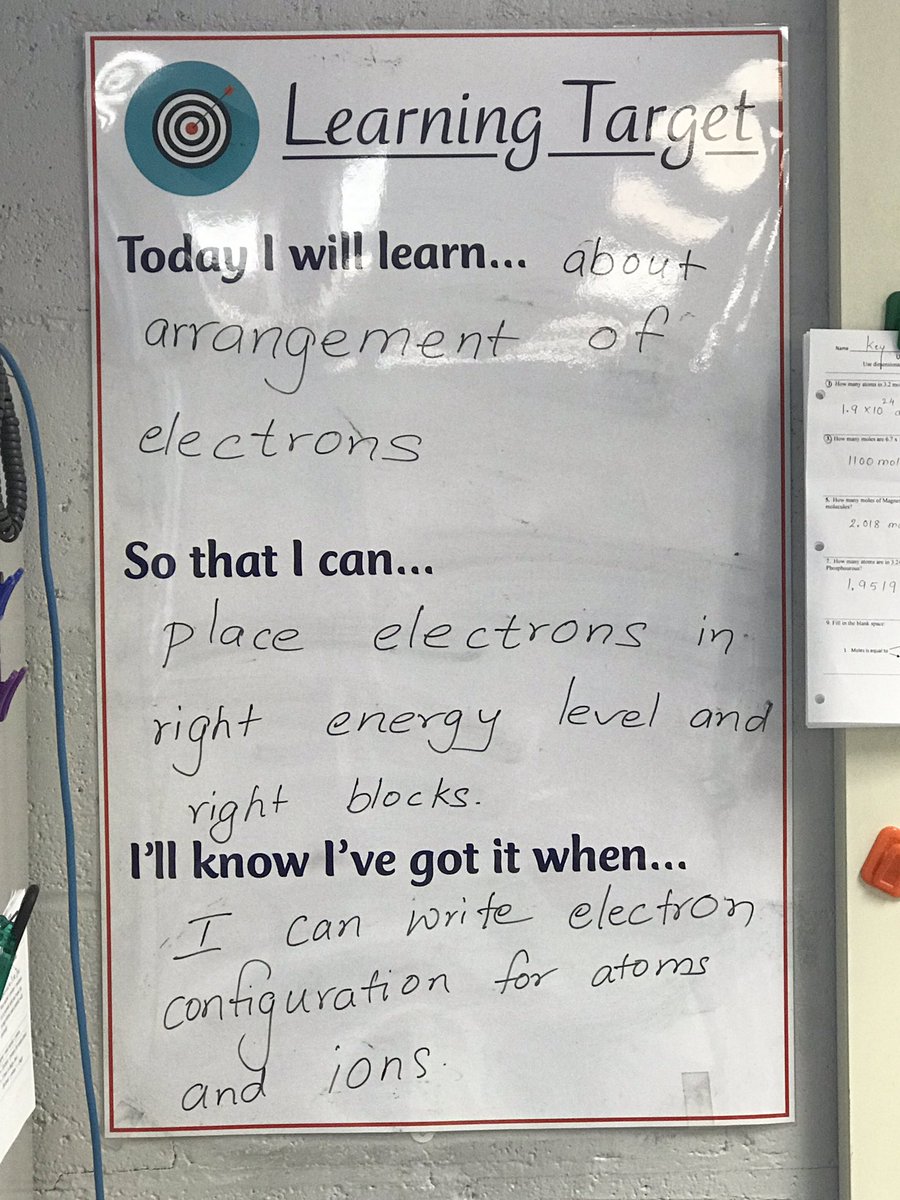 Learning Target
Today I will learn... about
arrangement of
electrons
So that I can...
place electrons in
right energy level and
right blocks.
I'll know I've got it when...
I can write electron
configuration for atoms
and ions.
Name Key
Use dimensiona
3 How many atoms in 3.2 mo
1.9 x 10²⁴ a
How many moles are 6.7 x
1100 mol
5. How many moles of Magne
molecules?
2.018 m
7. How many atoms are in 3.2
Phosphourous?
1.9519
9. Fill in the blank space:
1. Moles is equal to